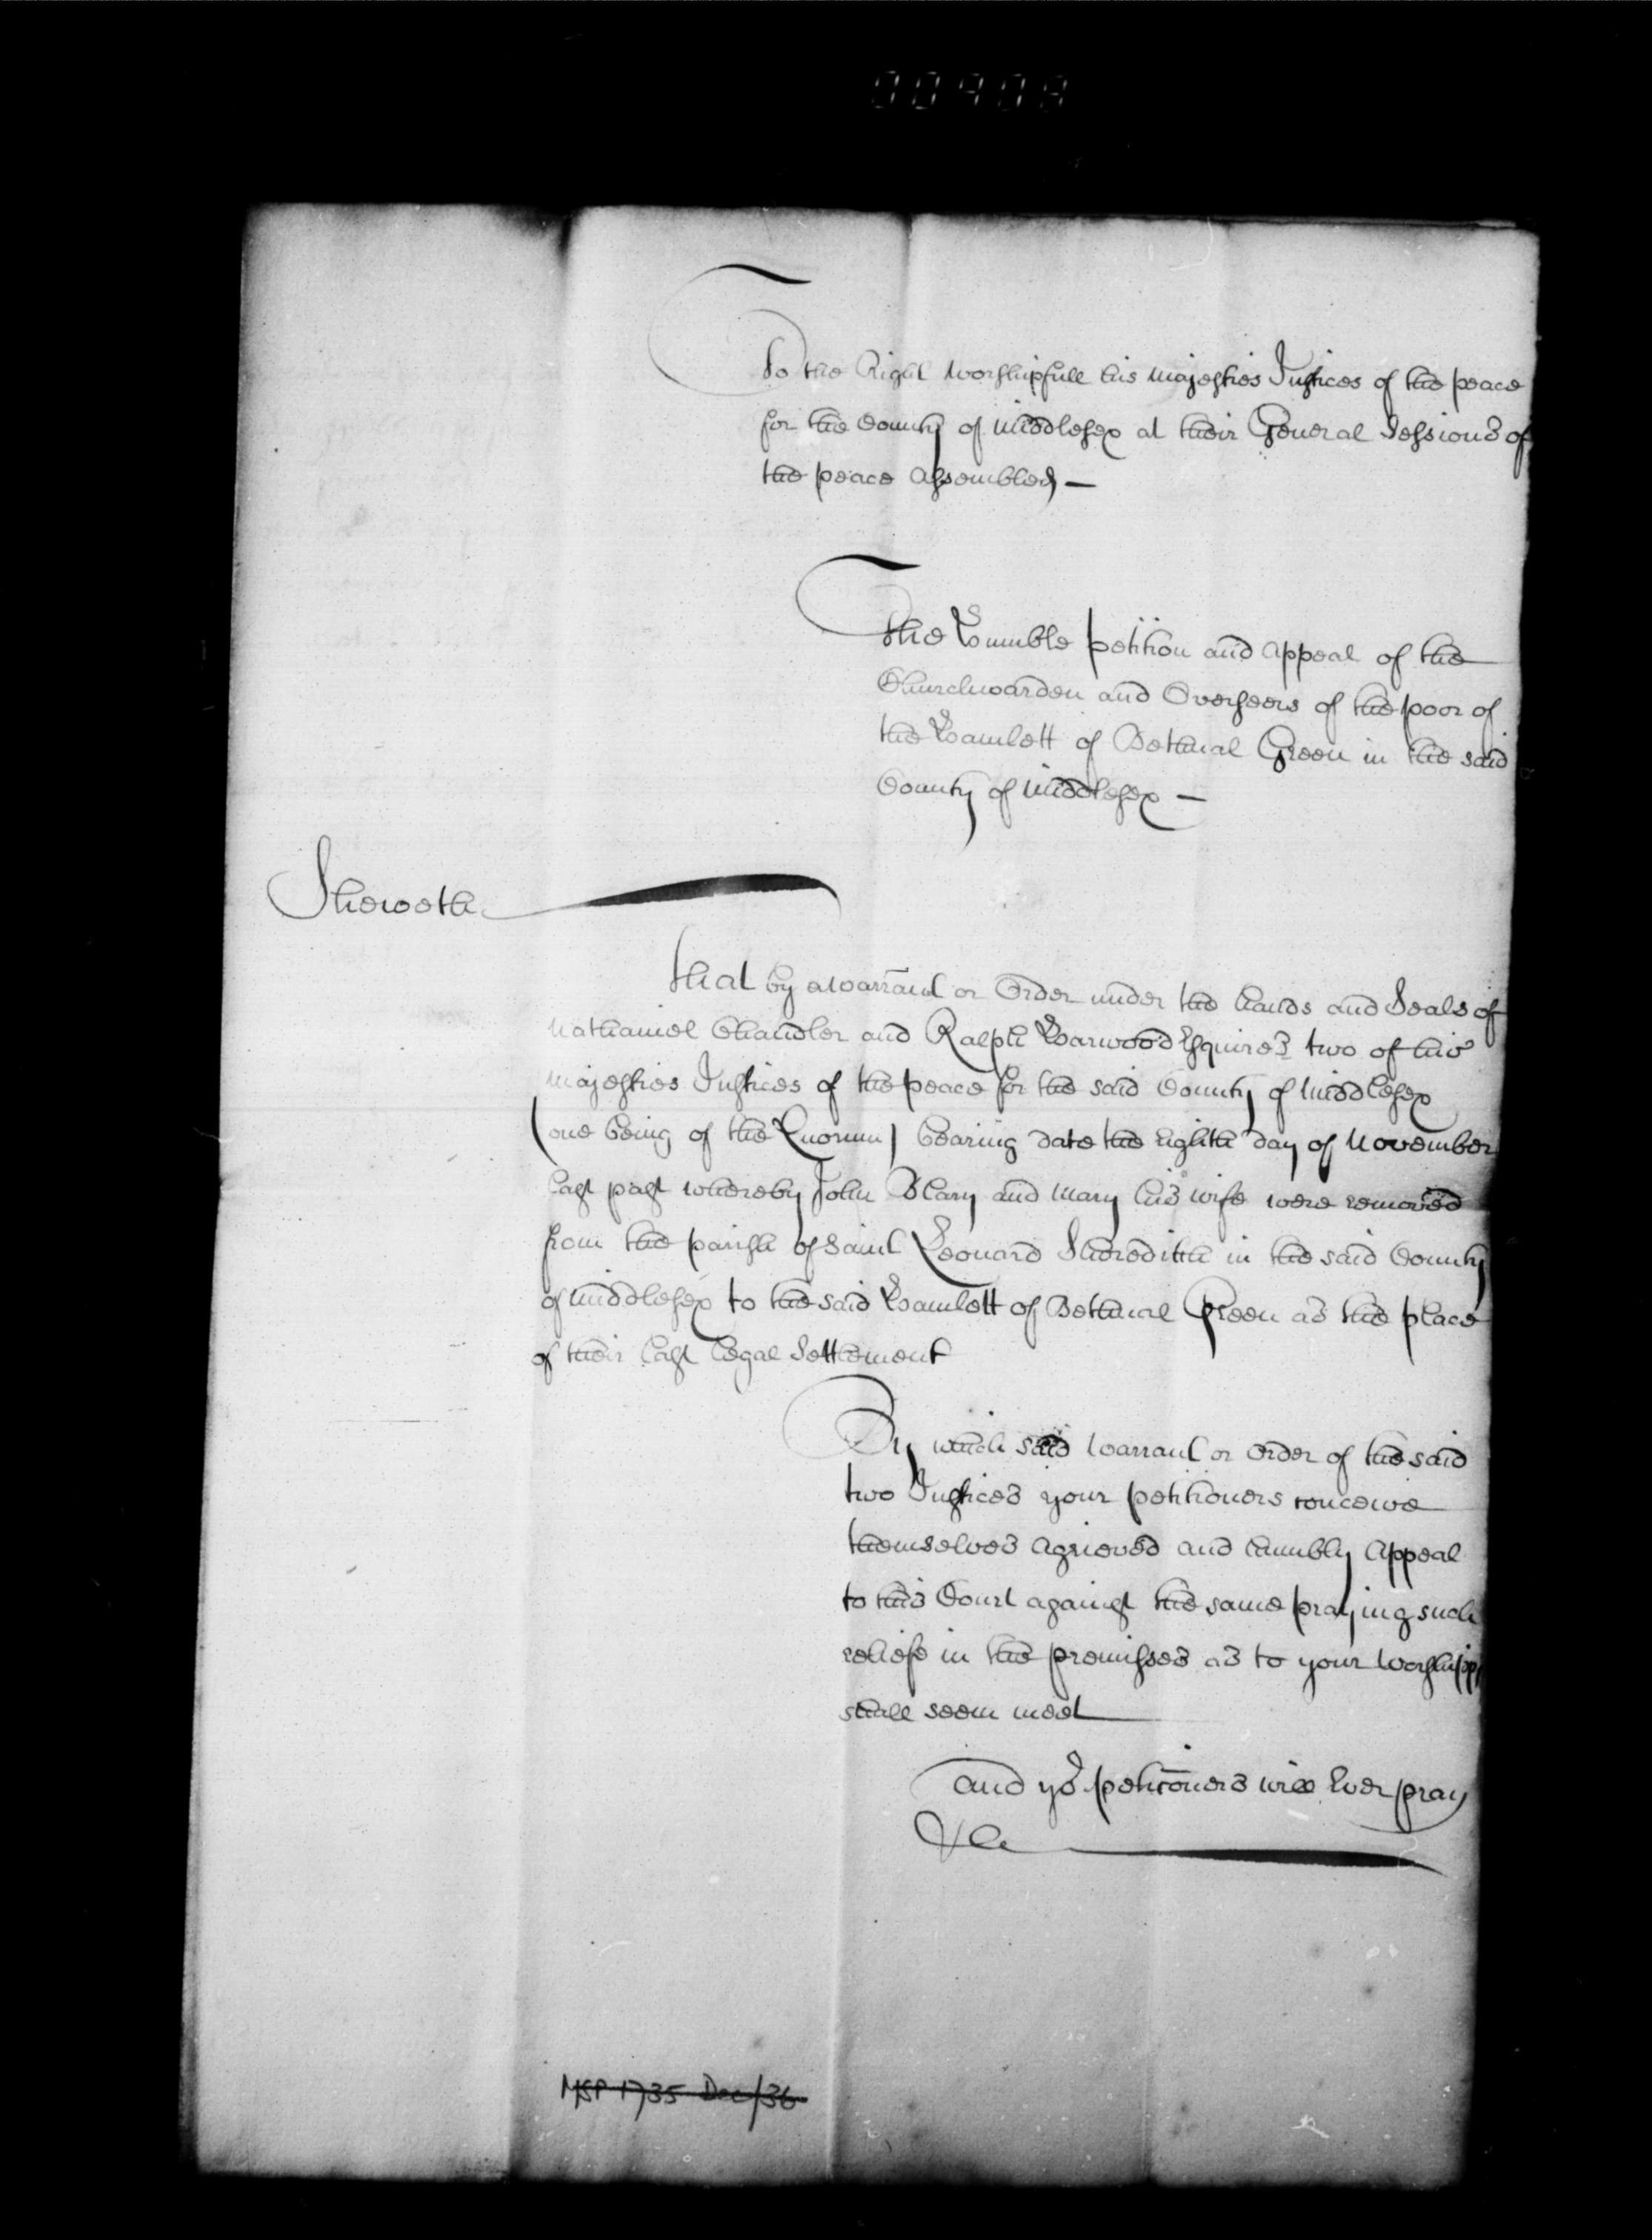 00408
To the Right Worshipfull his Majesties Justices of the peace
for the County of Middlesex at their General Sessions of
the peace Assembled —
The Humble petition and Appeal of the
Churchwarden and Overseers of the poor of
the Hamlett of Bethnal Green in the said
County of Middlesex —
Sheweth
That by a warrant or Order under the hands and Seals of
Nathaniel Chandler and Ralph Harwood Esquires two of his
Majesties Justices of the peace for the said County of Middlesex
(one being of the Quorum) bearing date the Eighth day of November
last past whereby John Blary and Mary his wife were removed
from the parish of Saint Leonard Shoreditch in the said County
of Middlesex to the said Hamlett of Bethnal Green as the place
of their last legal Settlement
By which said Warrant or Order of the said
two Justices your petitioners conceive
themselves Agrieved and humbly Appeal
to this Court against the same praying such
reliefe in the premisses as to your Worshipps
shall seem meet
And yor. peticoners will Ever pray
&c
MSP 1735 Dec/36